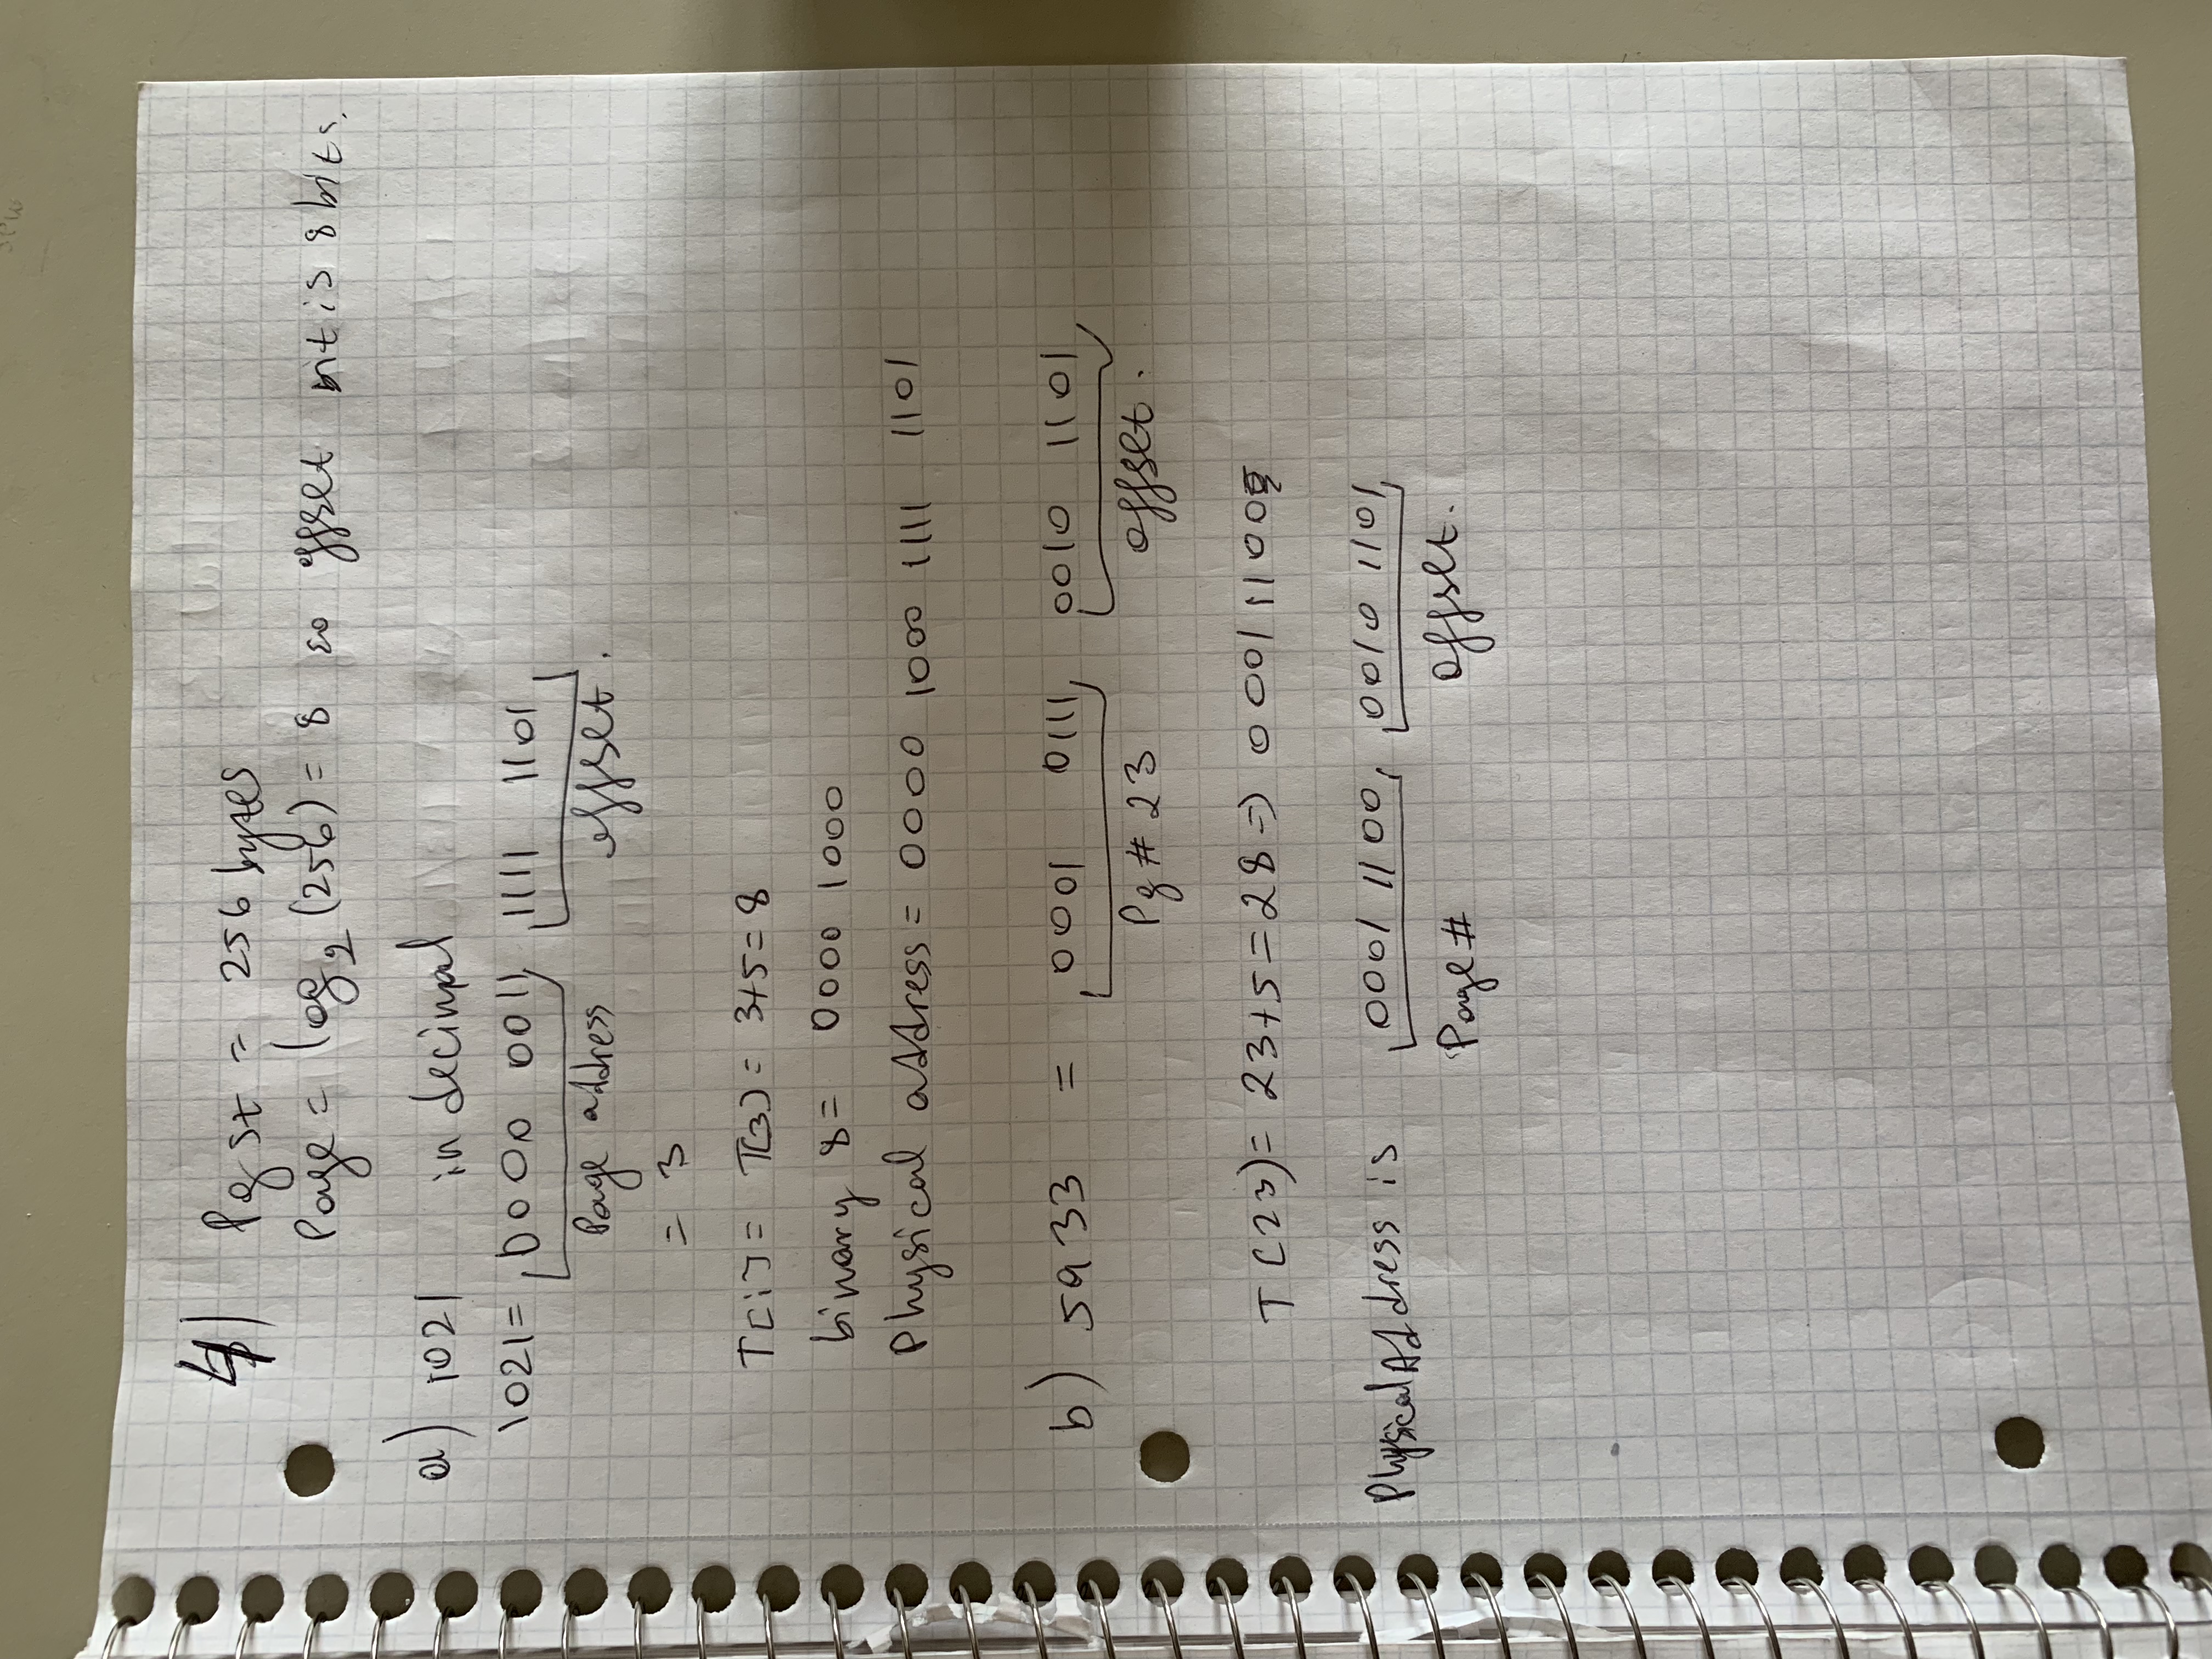 4) Pg sz = 256 bytes
Page = log₂ (256) = 8 so offset bit is 8 bits.
a) 1021 in decimal
1021 = 0000 0011 1111 1101
Page address offset.
= 3
T[i] = T[3] = 3+5 = 8
binary 8 = 0000 1000
Physical address = 0000 1000 1111 1101
b) 5933 = 0001 0111 0010 1101
Pg # 23 offset.
T(23) = 23+5 = 28 => 0001 1100
Physical Address is 0001 1100 0010 1101
Page # offset.